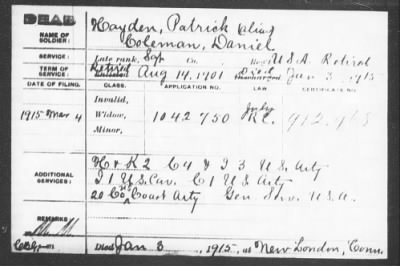 DEAD
NAME OF SOLDIER: Hayden, Patrick alias
Coleman, Daniel
SERVICE: Late rank, Sgt Co. Reg't U.S.A. Retired
TERM OF SERVICE: Retired Enlisted Aug 14, 1901 Died Jan 3, 1915
DATE OF FILING. CLASS. APPLICATION NO. LAW. CERTIFICATE NO.
Invalid,
1915 Mar 4 Widow, 1042750 912.968
Minor,
ADDITIONAL SERVICES: H & K 2 C 4 & I 3 U.S. Arty
I 1 U.S. Cav. C 1 U.S. Arty
20 Co Coast Arty Gen Serv. U.S.A.
REMARKS:
Died Jan 3, 1915, at New London, Conn.